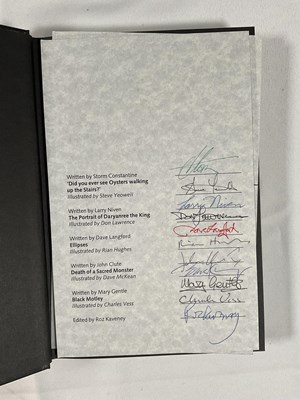 Written by Storm Constantine
'Did you ever see Oysters walking
up the Stairs?'
Illustrated by Steve Yeowell
Written by Larry Niven
The Portrait of Daryanree the King
Illustrated by Don Lawrence
Written by Dave Langford
Ellipses
Illustrated by Rian Hughes
Written by John Clute
Death of a Sacred Monster
Illustrated by Dave McKean
Written by Mary Gentle
Black Motley
Illustrated by Charles Vess
Edited by Roz Kaveney
Larry Niven
Don Lawrence
Dave Langford
Mary Gentle
Charles Vess
Roz Kaveney